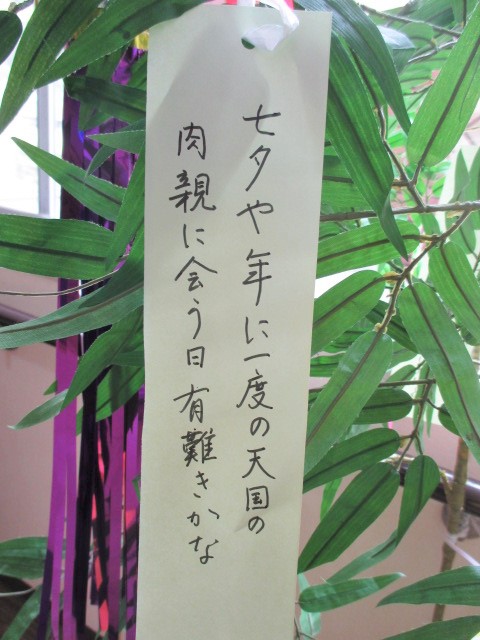 七夕や年に一度の天国の
肉親に会う日有難きかな